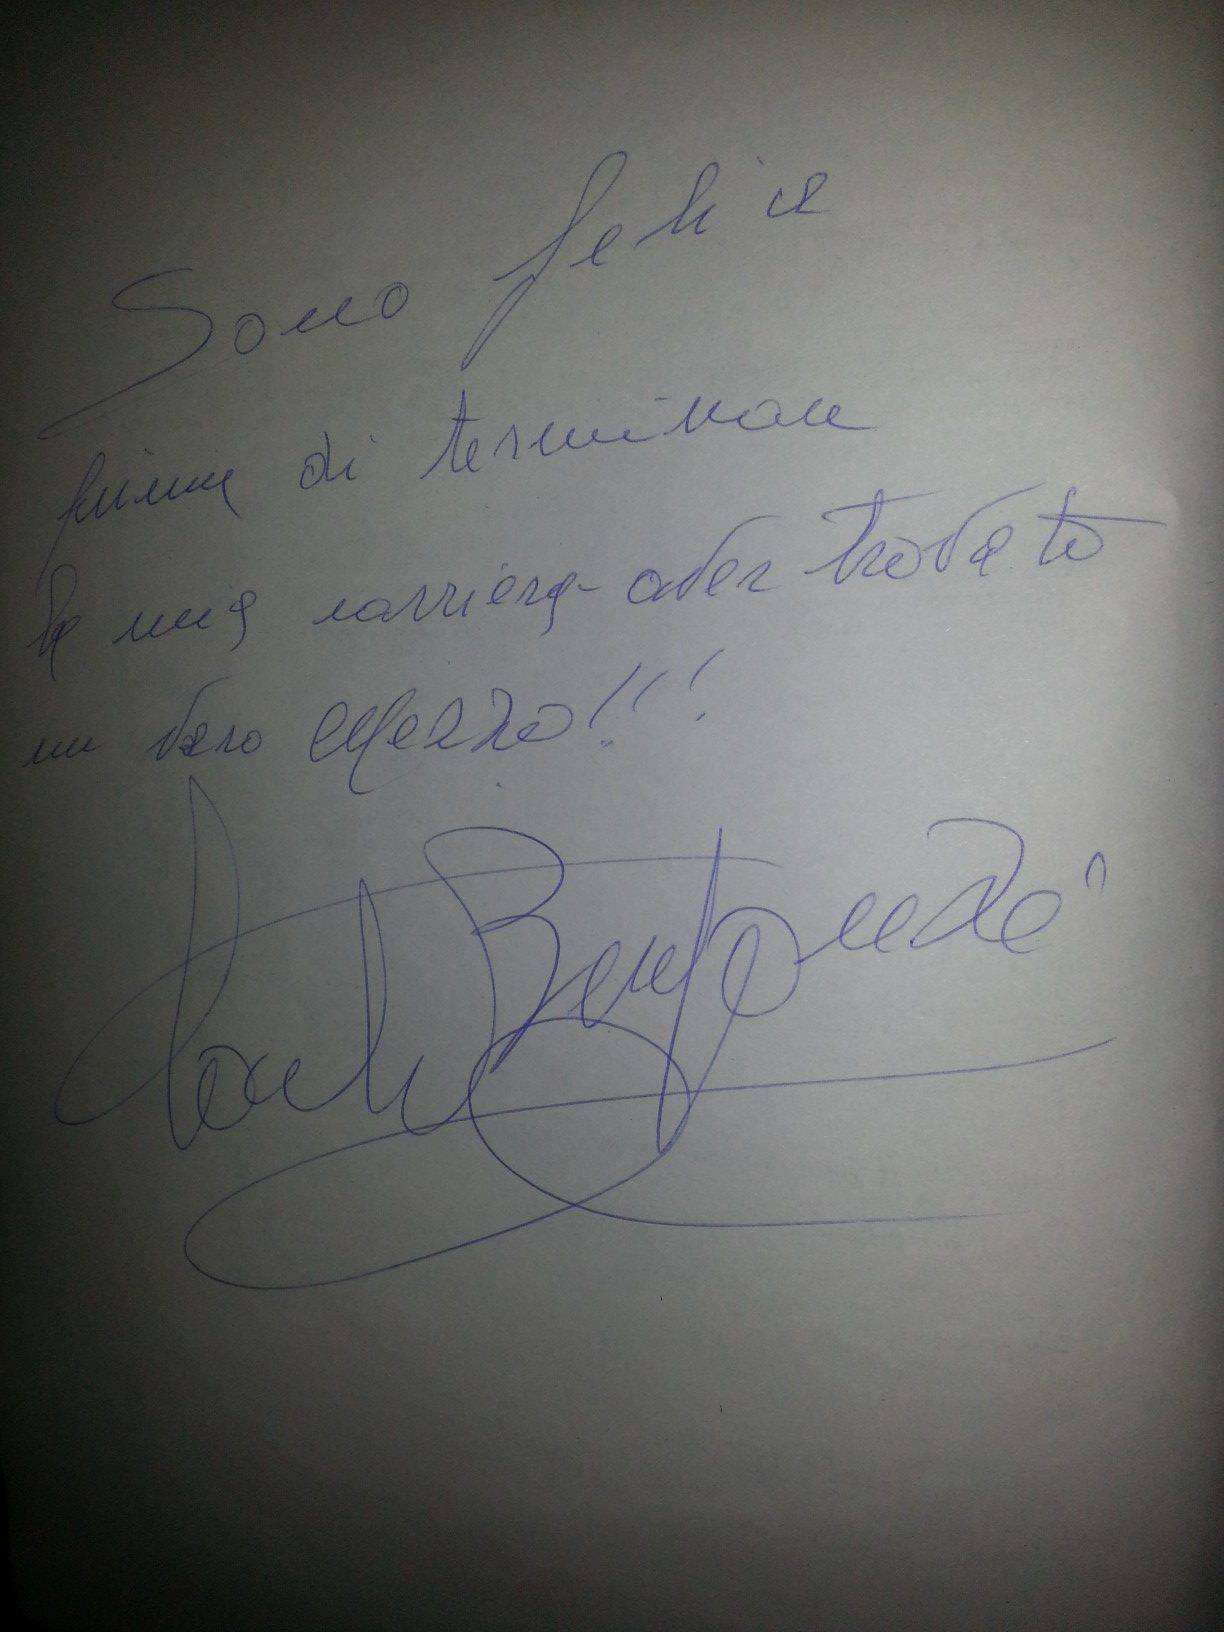 Sono felice
prima di terminare
la mia carriera aver trovato
un vero